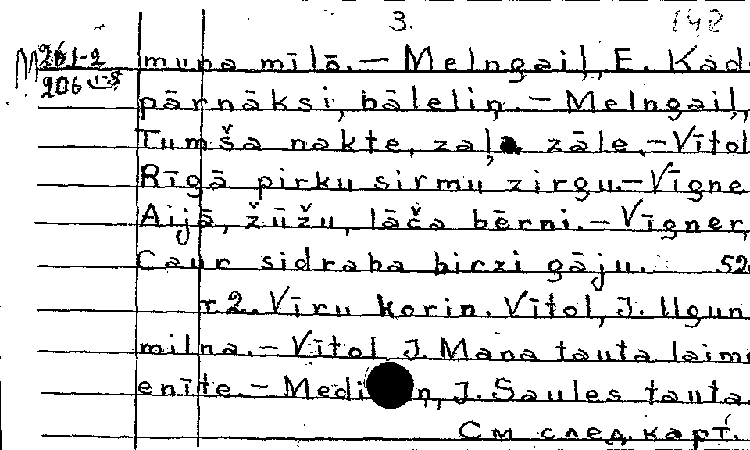 3. 148
М 261-2 muņa mīlā. — Melngaiļ, E. Kad
206 1-2 pārnāksi, bāleliņ. — Melngaiļ,
Tumša nakte, zaļa zāle. — Vītol
Rīgā pirku sirmu zirgu. — Vīgne
Aijā, žūžu, lāča bērni. — Vīgner,
Caur sidraba birzi gāju. 52
т. 2. Vīru korin. Vītol, J. Ilgun
milna. — Vītol, J. Mana tauta laim
enīte. — Medi ņ, J. Saules tauta.
См след. карт.